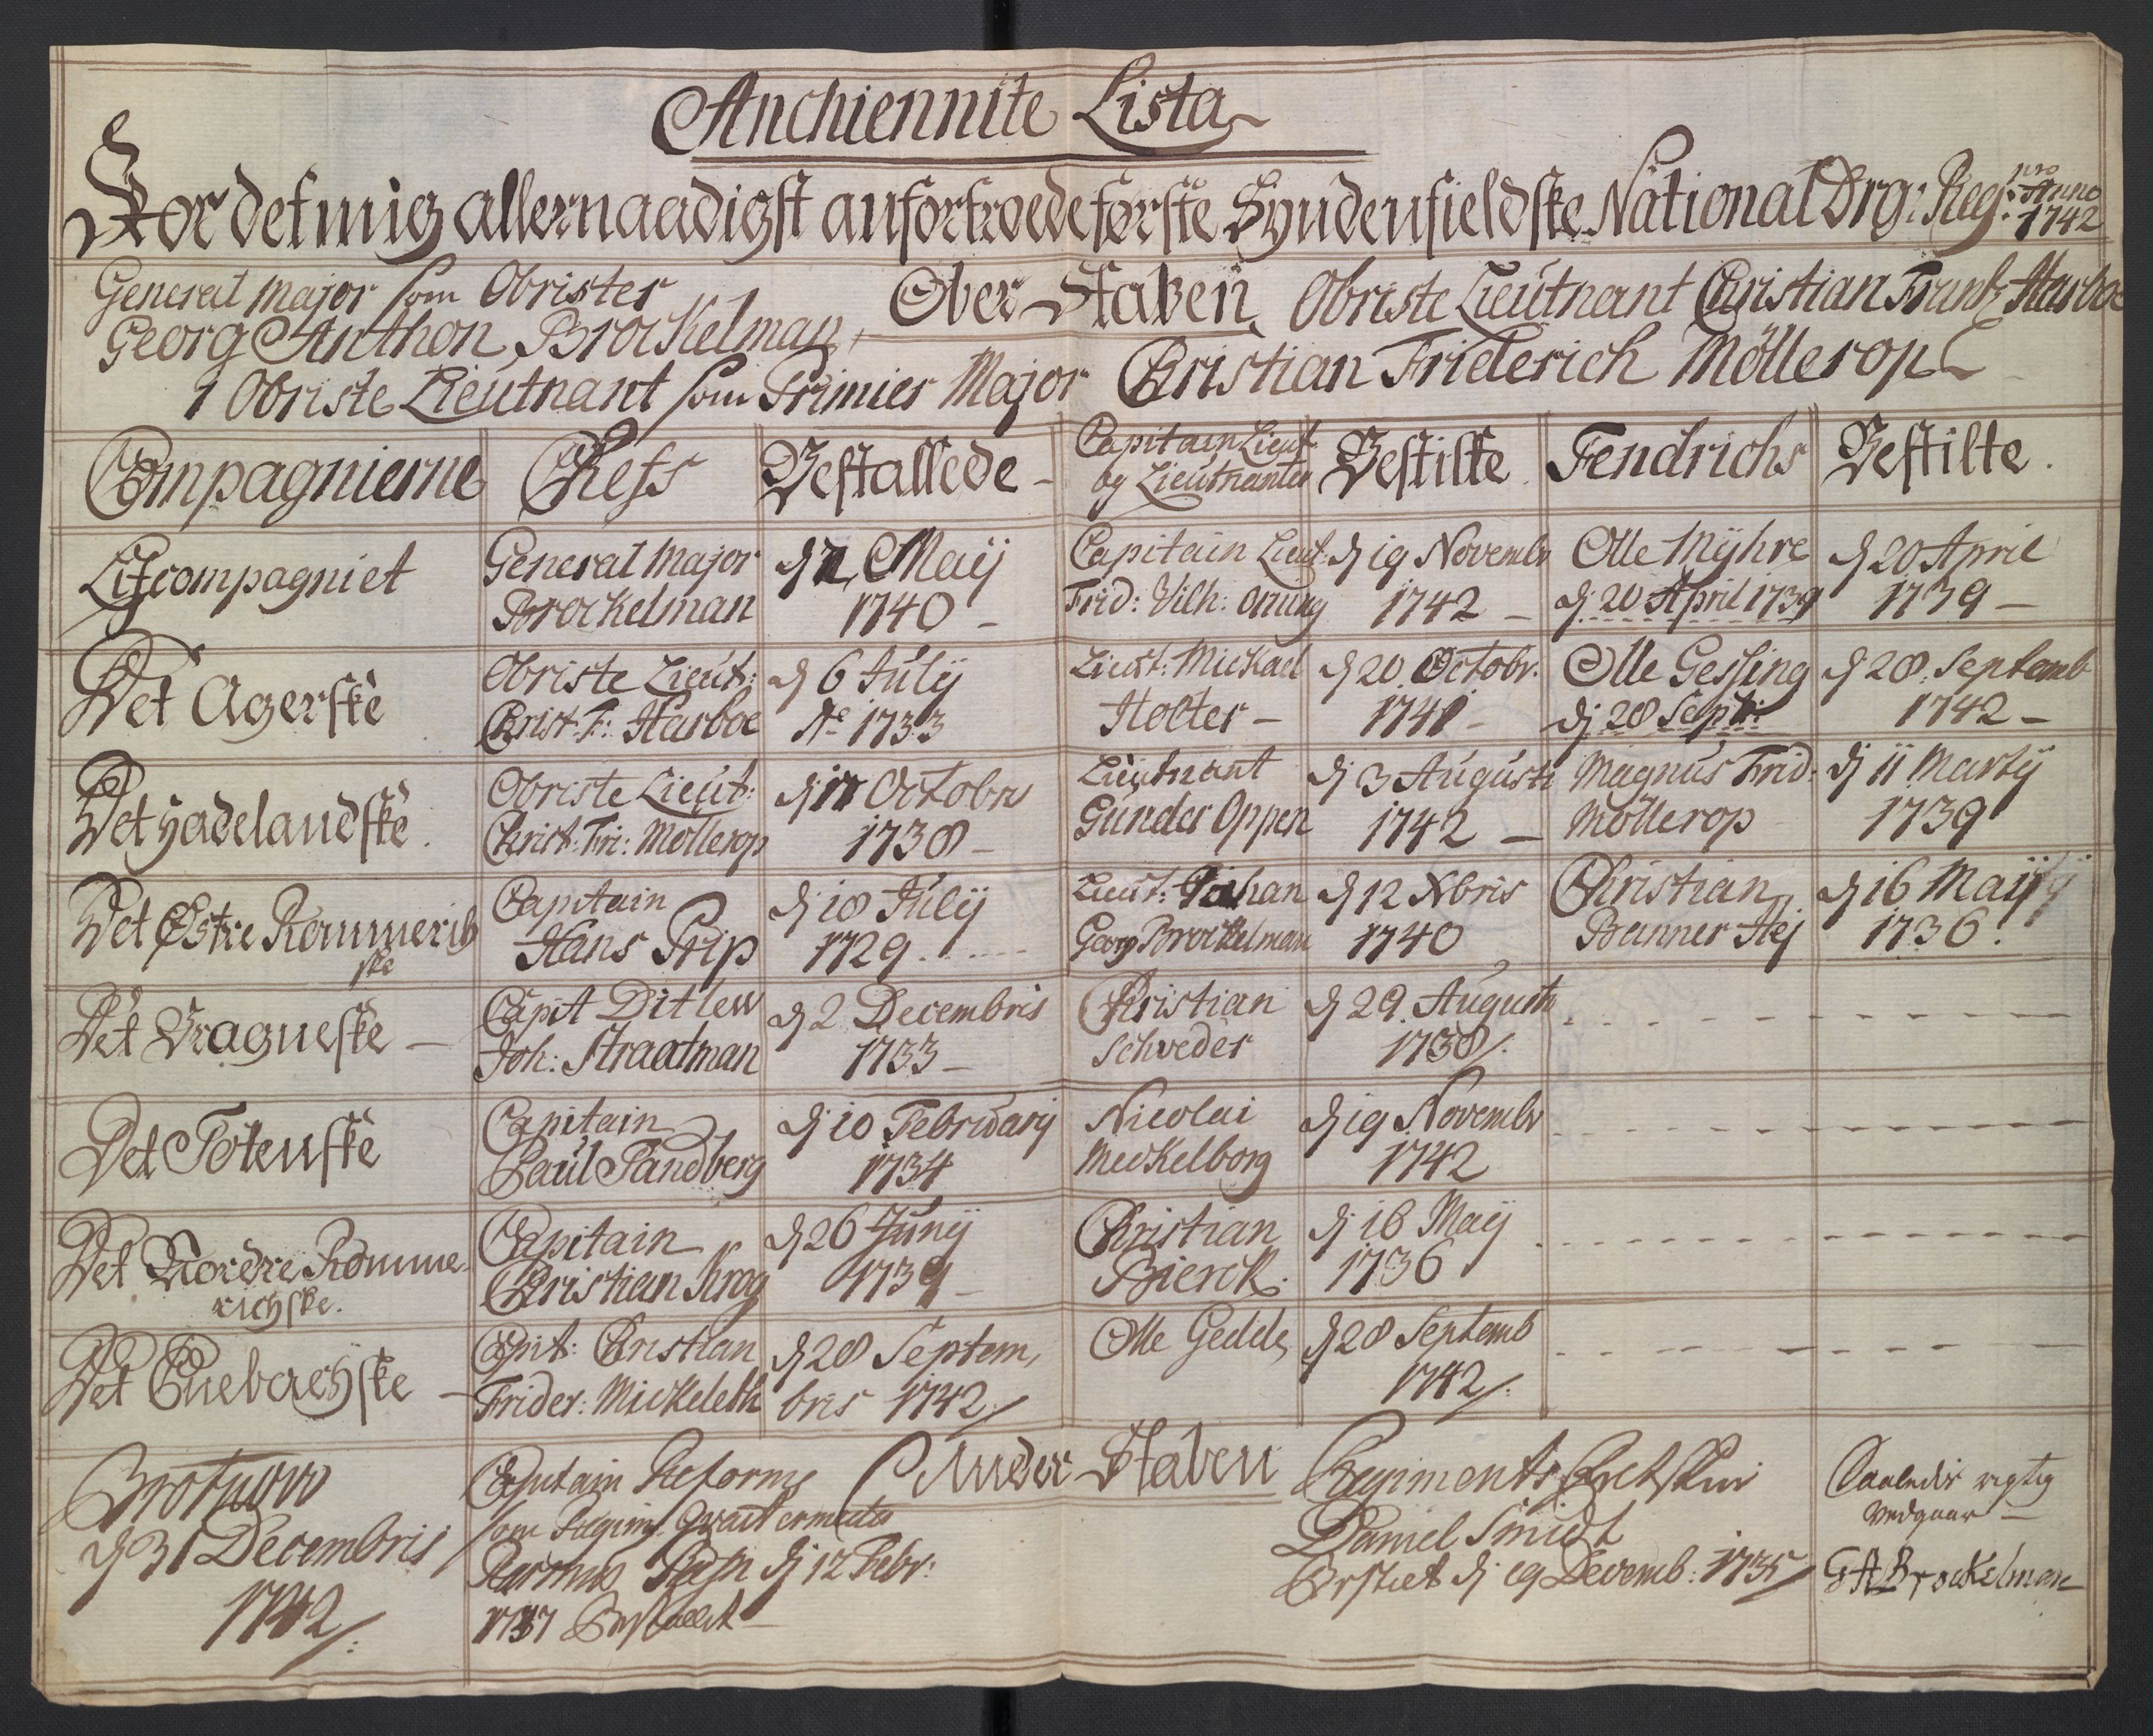 Anchiennite Lista
For det mig allernaadigst anfortroede første Syndenfieldske National Drg: Reg: pro Anno 1742
General Major som Obrister
Georg Anthon Brockelman,
Ober Staben
Obriste Lieutnant Christian Frantz Harboe
1 Obriste Lieutnant som Primier Major Christian Friderich Möllerop
Compagnierne
Chefs
Bestallede
Capitain Lieut:
og Lieutnanter
Bestilte
Fendrichs
Bestilte
Lifcompagniet
General Major
Brockelman
Maij
1740
Capitain Lieut:
Frid: Vilh:
dj 19 Novembr
1742
Olle Mÿhre
dj 20 April 1739
dj 20 April
1739
Det Agerske
Obriste Lieut:
Christ: F: Harboe
dj 6 Julij
Ao 1733
Lieut: Mickael
Holter
dj 20 Octobr:
1741
Olle Gessing
dj 28 Septr:
dj 28 Septemb
1742
Det Hadelandske
Obriste Lieut:
Christ: Fri: Möllerop
dj 17 Octobris
1738
Lieutnant
Gunder Oppen
dj 3 Augusti
1742
Magnus Frid:
Möllerop
dj 11 Martij
1739
Det Østre Rommerich
ske
Capitain
Hans Prip
dj 18 Julij
1729
Lieut: Johan
Georg Brockelman
dj 12 Xbris
1740
Christian
Banner Hej
dj 16 Maij
1736
Det Kragueske
Capit Ditlew
Joh: Straatman
dj 2 Decembris
1733
Christian
Schveder
dj 29 Augusti
1738
Det Totenske
Capitain
Paul Sandberg
dj 10 Februarij
1734
Nicolai
Meckelborg
dj 19 Novembr
1742
Det Nordre Romme
richske.
Capitain
Christian Krog
dj 26 Junij
1739
Christian
Bierck:
dj 16 Maij
1736
Det Enebachske
Capit: Christian
Frider: Mickeleth
dj 28 Septem,
bris 1742
Olle Gedde
dj 28 Septemb
1742
dj 31 Decembris
1742
Capitain Reforme
som Regim: Qvartermester
Rasmus dj 12 Febr:
1737 Bestallet
Under Staben
Regiments
Daniel Smidt
Bestilet dj 19 Decemb: 1735
Saaledes rigtig
vedgaar
G A Brockelman